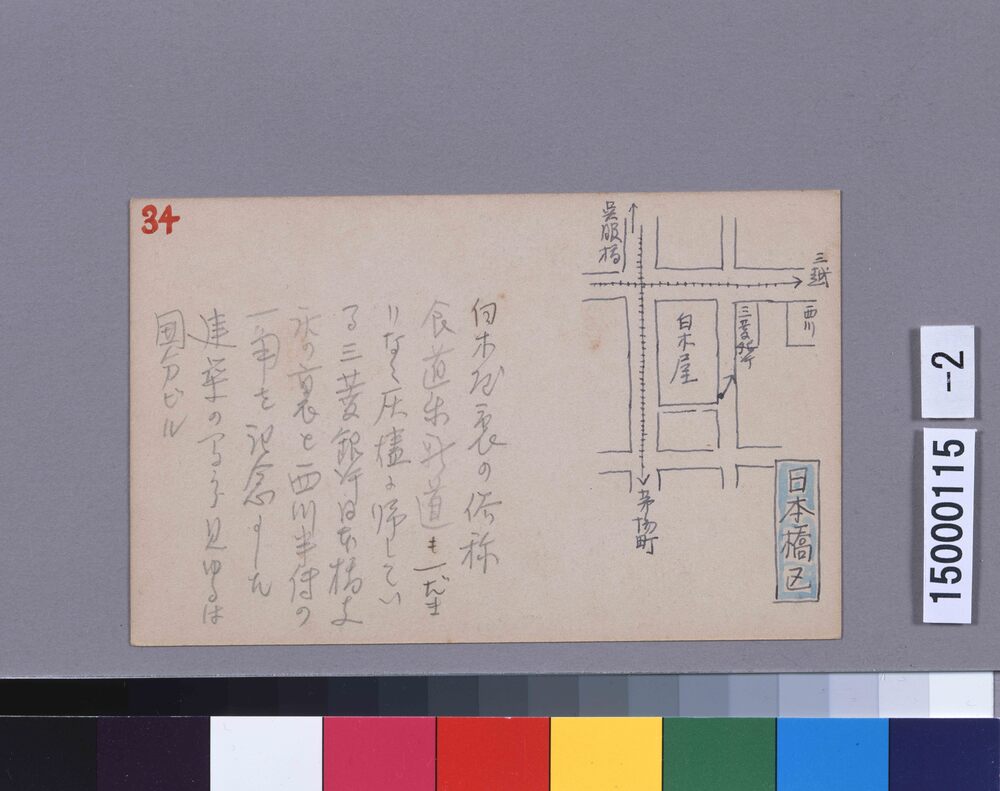 34
呉服橋
三越
西川
三菱銀行
白木屋
茅場町
日本橋区
白木屋裏の俗称
食道楽新道も一だま
りなく灰燼に帰してい
る三菱銀行日本橋支
店の裏と西川半傳の
一角を記念しました
建築の
見ゆるは
国分ビル
15000115
-2